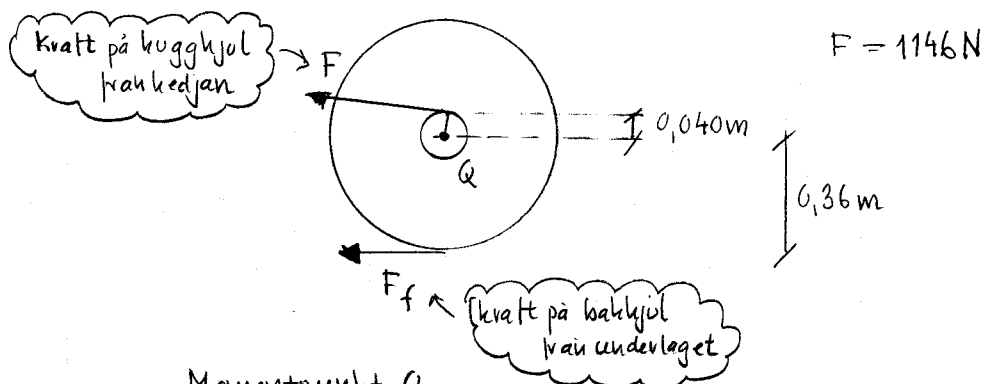 Kraft på kugghjul
från kedjan
F
F = 1146 N
0,040 m
Q
0,36 m
F_f
kraft på bakhjul
från underlaget
Momentpunkt Q